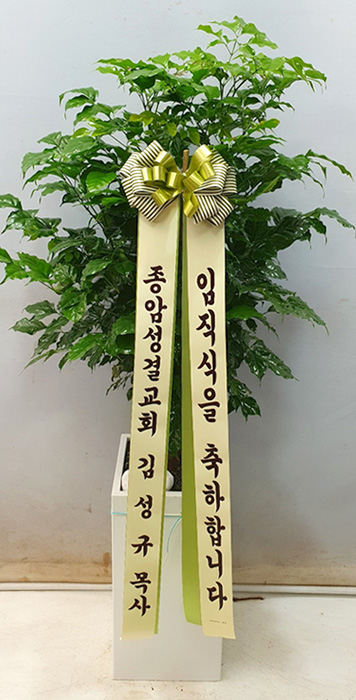 임직식을 축하합니다
종암성결교회 김성규 목사